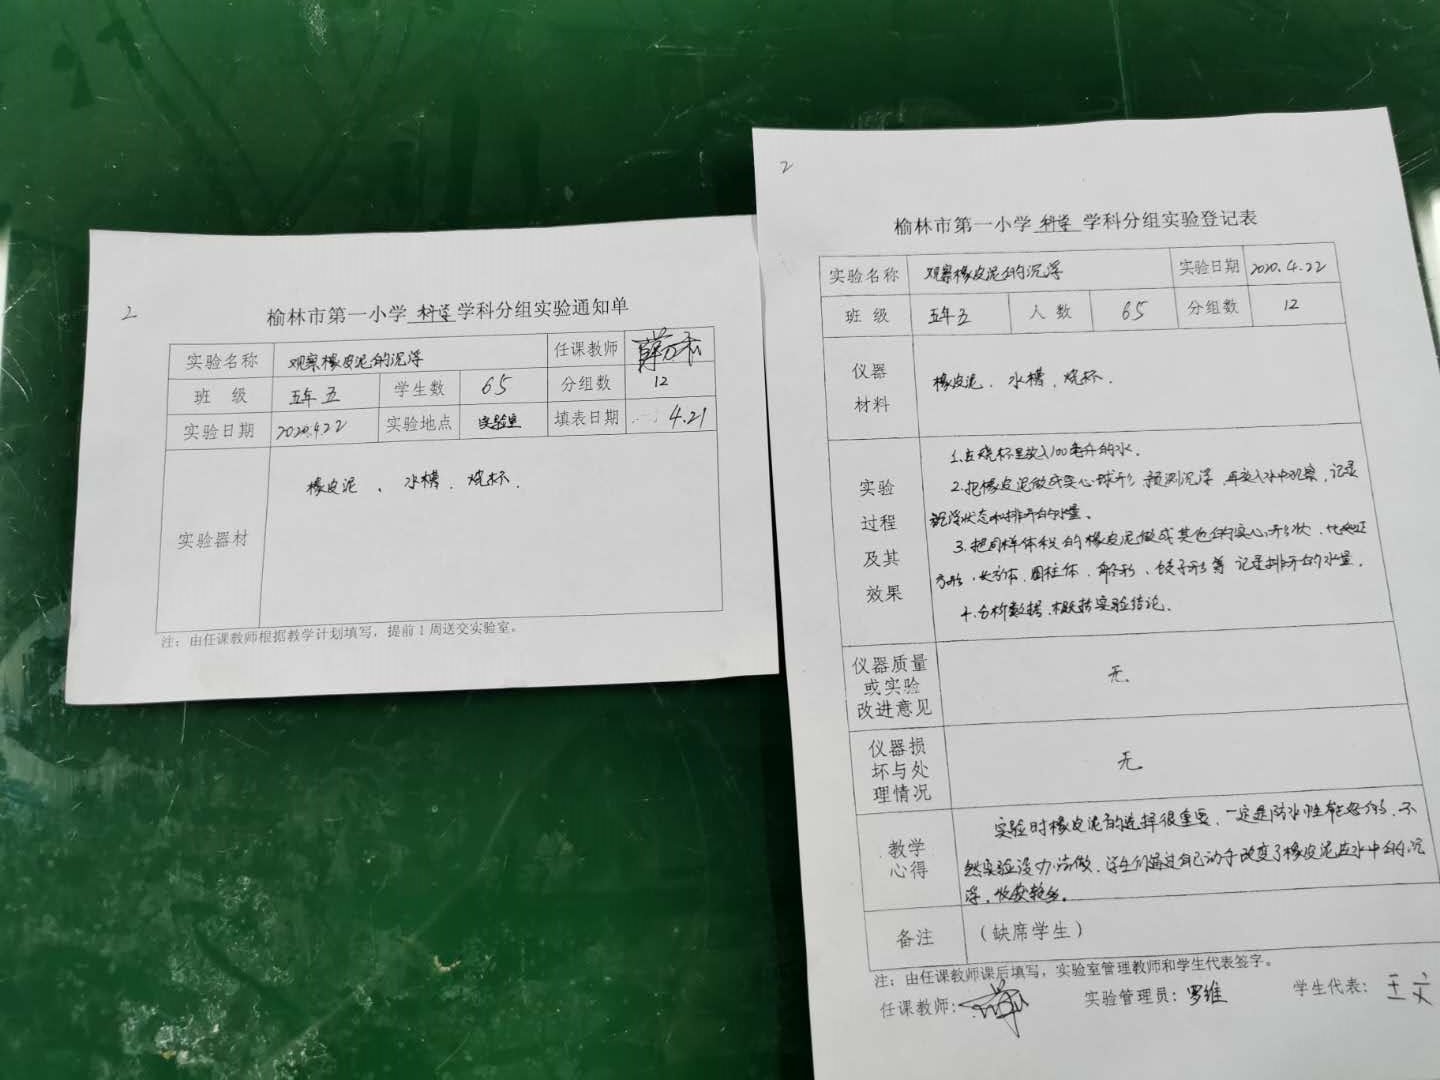 2
榆林市第一小学 科学 学科分组实验通知单
实验名称 观察橡皮泥的沉浮 任课教师
班 级 五年五 学生数 65 分组数 12
实验日期 2020.4.22 实验地点 实验室 填表日期 4.21
实验器材 橡皮泥、水槽、烧杯.
注：由任课教师根据教学计划填写，提前1周送交实验室。
2
榆林市第一小学 科学 学科分组实验登记表
实验名称 观察橡皮泥的沉浮 实验日期 2020.4.22
班 级 五年五 人 数 65 分组数 12
仪器
材料
橡皮泥、水槽、烧杯.
实验
过程
及其
效果
1.在烧杯里放入100毫升的水.
2.把橡皮泥做成实心球形 预测沉浮，再放入水中观察，记录
沉浮状态和排开的水量.
3.把同样体积的橡皮泥做成其他的实心形状，比如正
方形、长方体、圆柱体、船形、饺子形等 记录排开的水量.
4.分析数据,概括实验结论.
仪器质量
或实验
改进意见
无
仪器损
坏与处
理情况
无
教学
心得
实验时橡皮泥的选择很重要，一定是防水性能好的，不
然实验没办法做，学生们通过自己动手改变了橡皮泥在水中的沉
浮，收获较多。
备注 （缺席学生）
注：由任课教师课后填写，实验室管理教师和学生代表签字。
任课教师： 实验管理员：罗维 学生代表：王文